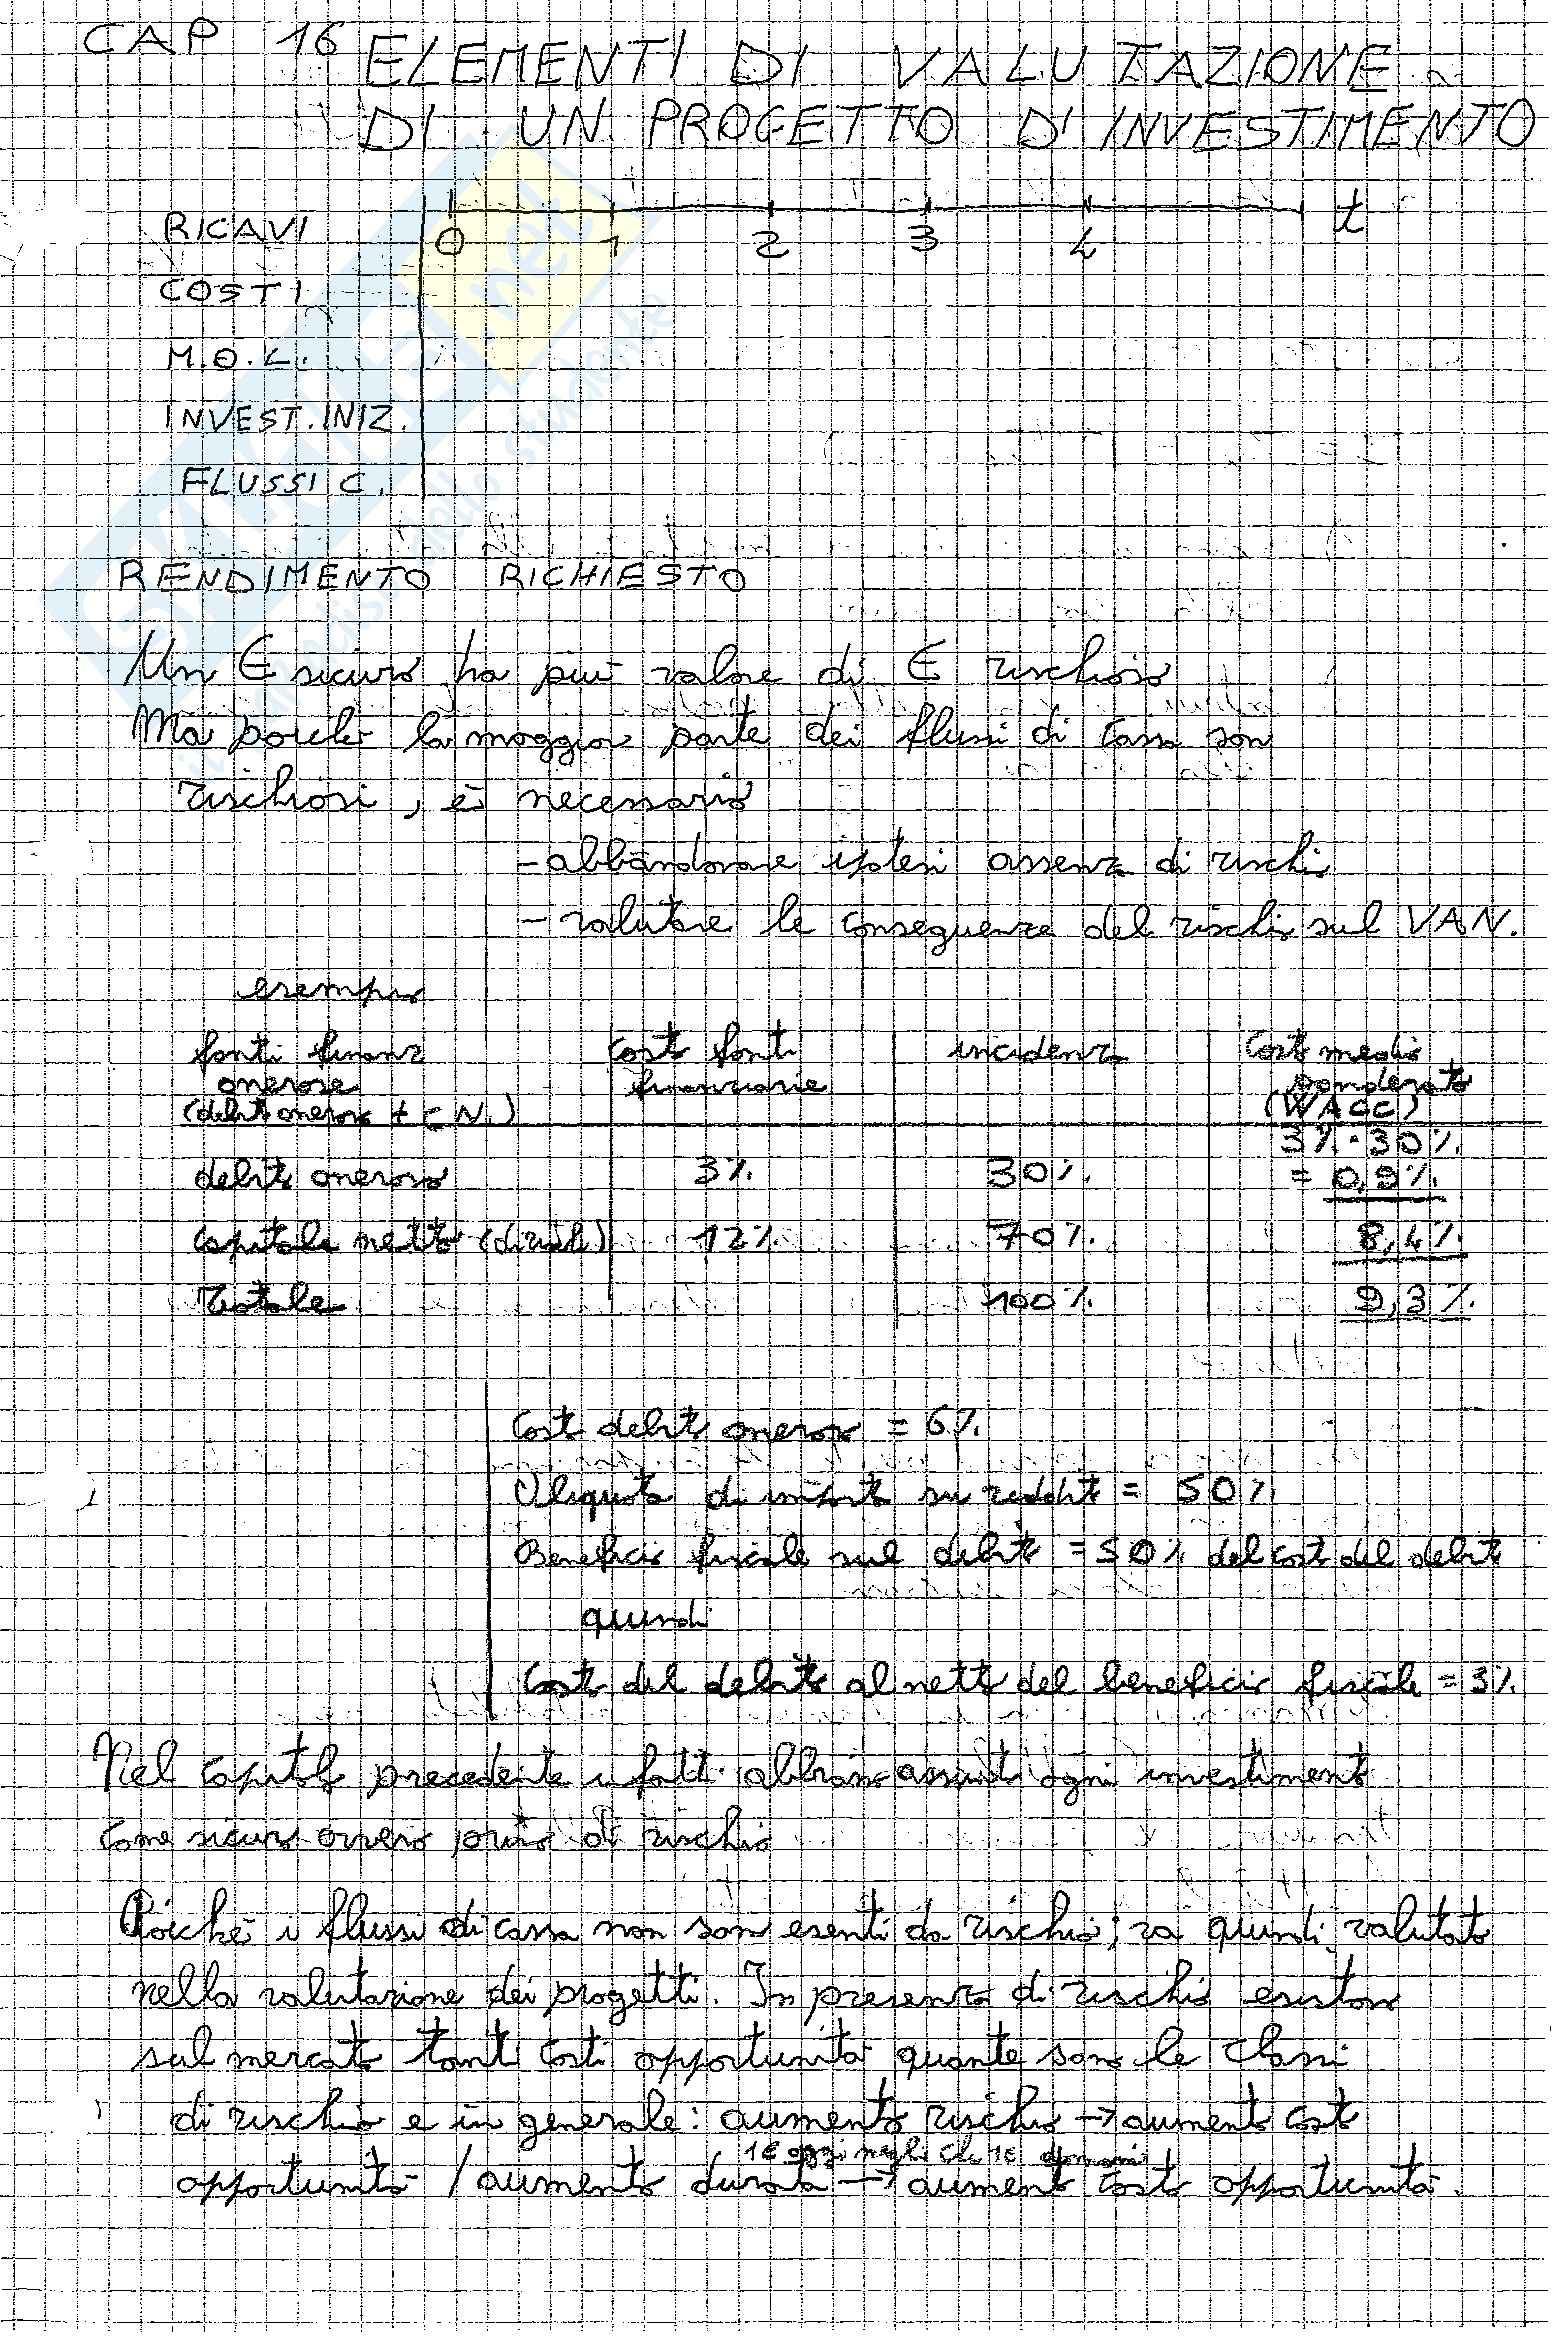 CAP 16 ELEMENTI DI VALUTAZIONE
DI UN PROGETTO D'INVESTIMENTO
RICAVI 0 1 2 3 4 t
COSTI
M.O.L.
INVEST. INIZ.
FLUSSI C.
RENDIMENTO RICHIESTO
Un € sicuro ha più valore di € rischioso
Ma poichè la maggior parte dei flussi di cassa son
rischiosi, è necessario
- abbandonare ipotesi assenza di rischio
- valutare le conseguenze del rischio sul VAN.
esempio
fonti finanz costo fonti incidenza costo medio
onerose finanziarie ponderato
(debito oneroso + C N.) (WACC)
3% · 30%
debito oneroso 3% 30% = 0,9%
capitale netto (dividi) 12% 70% 8,4%
Totale 100% 9,3%
Costo debito oneroso = 6%
Aliquota di imposta su reddito = 50%
Beneficio fiscale sul debito = 50% del costo del debito
quindi
Costo del debito al netto del beneficio fiscale = 3%
Nel capitolo precedente infatti abbiamo assunto ogni investimento
come sicuro ovvero privo di rischio
Poichè i flussi di cassa non son esenti da rischio; va quindi valutato
nella valutazione dei progetti. In presenza di rischio esistono
sul mercato tanti costi opportunità quante sono le classi
di rischio e in generale: aumento rischio → aumento costo
1€ oggi meglio che 1€ domani
opportunità / aumento durata → aumento costo opportunità.